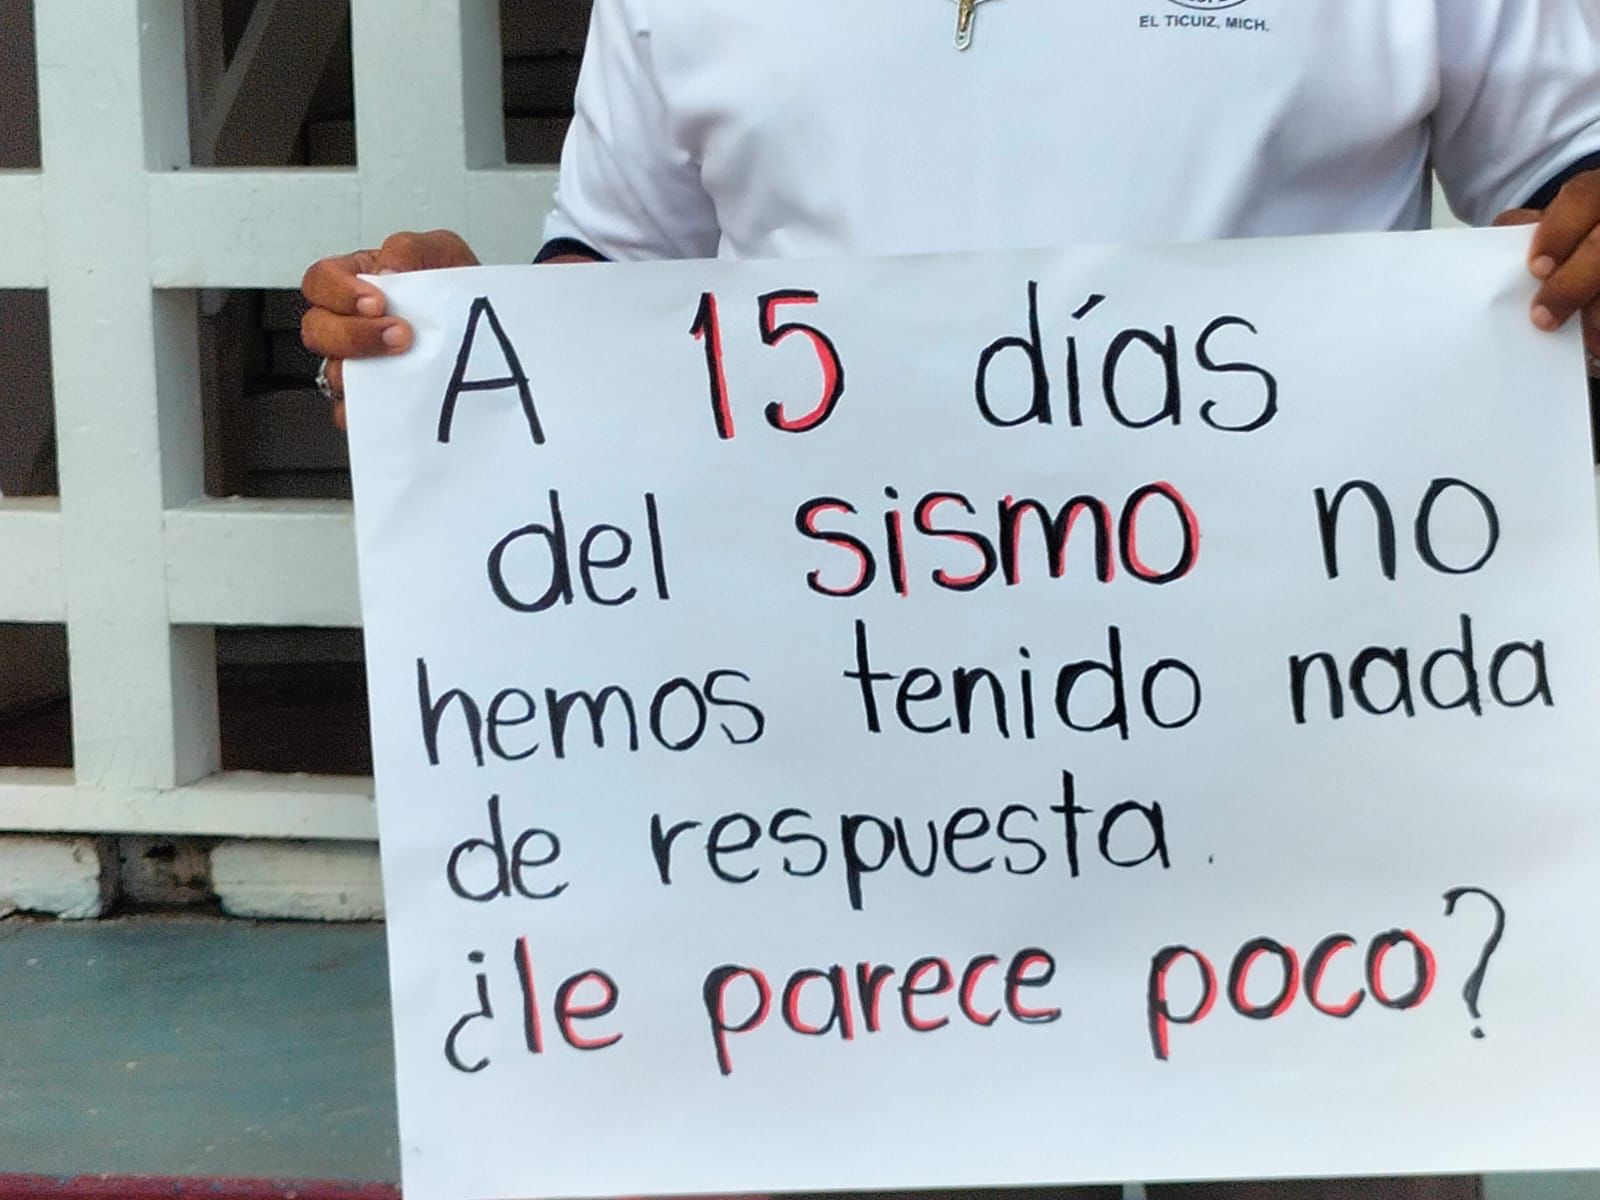 EL TICUIZ, MICH.
A 15 días
del sismo no
hemos tenido nada
de respuesta.
¿le parece poco?